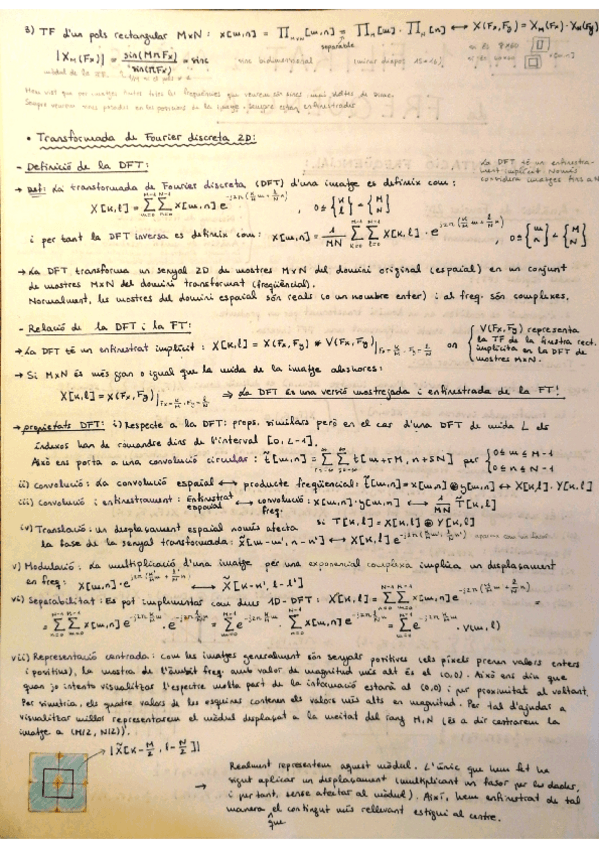 3) TF d'un pols rectangular MxN: x[m,n] = ∏MxN[m,n] = ∏M[m] · ∏N[n] ⟷ X(Fx,Fy) = XM(Fx)·XN(Fy)
separable
|XM(Fx)| = sin(πMFx)/sin(πFx) = sinc
• Transformada de Fourier discreta 2D:
- Definició de la DFT:
La DFT té un enfinestrament implícit. Només considera imatges fins a
→ Def: La transformada de Fourier discreta (DFT) d'una imatge es defineix com:
X[k,l] = Σ Σ x[m,n] e^{-j2π(k/M m + l/N n)} , 0 ≤ {k l} < {M N}
i per tant la DFT inversa es defineix com: x[m,n] = 1/MN Σ Σ X[k,l] · e^{j2π(k/M m + l/N n)} , 0 ≤ {m n} < {M N}
→ La DFT transforma un senyal 2D de mostres MxN del domini original (espaial) en un conjunt
de mostres MxN del domini transformat (freqüencial).
Normalment, les mostres del domini espaial són reals (o un nombre enter) i al freq. són complexes.
- Relació de la DFT i la FT:
→ La DFT té un enfinestrat implícit: X[k,l] = X(Fx,Fy) * V(Fx,Fy)|Fx=k/M, Fy=l/N on { V(Fx,Fy) representa
la TF de la finestra rect.
implícita en la DFT de
mostres MxN.
→ Si MxN és més gran o igual que la mida de la imatge aleshores:
X[k,l] = X(Fx,Fy)|Fx=k/M, Fy=l/N ⇒ La DFT és una versió mostrejada i enfinestrada de la FT!
→ propietats DFT: i) Respecte a la DFT: props. similars però en el cas d'una DFT de mida L els
índexos han de romandre dins de l'interval [0, L-1].
Això ens porta a una convolució circular: t̃[m,n] = Σ Σ t[m+rM, n+sN] per { 0≤m≤M-1 0≤n≤N-1
ii) convolució: La convolució espaial ⟷ producte freqüencial: t̃[m,n] = x[m,n] ⊛ y[m,n] ⟷ X[k,l]·Y[k,l]
iii) Convolució i enfinestrament: enfinestrat espaial ⟷ convolució freq.: x[m,n]·y[m,n] ⟷ 1/MN T̃[k,l]
si T[k,l] = X[k,l] ⊛ Y[k,l]
iv) Translació: un desplaçament espaial només afecta
la fase de la senyal transformada: x̃[m-m', n-n'] ⟷ X[k,l] e^{-j2π(k/M m' + l/N n')}
v) Modulació: La multiplicació d'una imatge per una exponencial complexa implica un desplaçament
en freq: x[m,n]·e^{j2π(k'/M m + l'/N n)} ⟷ X̃[k-k', l-l']
vi) Separabilitat: Es pot implementar com dues 1D-DFT: X[k,l] = Σ Σ x[m,n] e^{-j2π(k/M m + l/N n)} =
= Σ Σ x[m,n] e^{-j2π k/M m} · e^{-j2π l/N n} = Σ e^{-j2π k/M m} · Σ x[m,n] e^{-j2π l/N n} = Σ e^{-j2π k/M m} · v(m,l)
vii) Representació centrada: com les imatges generalment són senyals positives (els píxels prenen valors enters
i positius), la mostra de l'àmbit freq. amb valor de magnitud més alt és el (0,0). Això ens diu que
quan jo intento visualitzar l'espectre molta part de la informació estarà al (0,0) i per proximitat al voltant.
Per simetria, els quatre valors de les esquines contenen els valors més alts en magnitud. Per tal d'ajudar a
visualitzar millor representarem el mòdul desplaçat a la meitat del rang M,N (és a dir centrarem la
imatge a (M/2, N/2)).
→ |X̃[k-M/2, l-N/2]|
→ Realment representem aquest mòdul. L'únic que hem fet ha
sigut aplicar un desplaçament (multiplicant un fasor per les dades,
i per tant, sense afectar al mòdul). Així, hem enfinestrat de tal
manera que el contingut més rellevant estigui al centre.